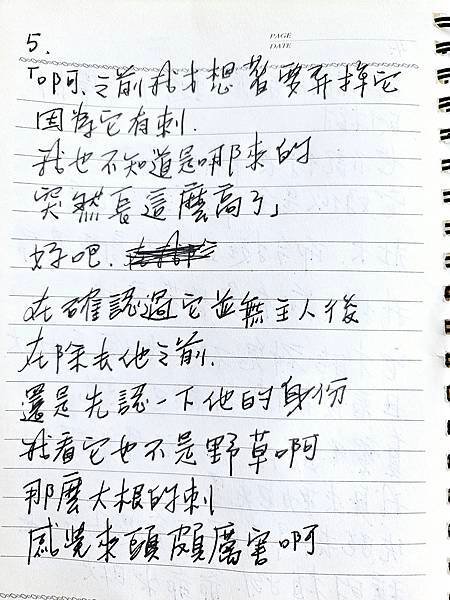 5.
PAGE
DATE
「啊、之前我才想著要弄掉它
因為它有刺.
我也不知道是哪來的
突然長這麼高了」
好吧.
在確認過它並無主人後
在除去他之前.
還是先認一下他的身份
我看它也不是野草啊
那麼大根的刺
感覺來頭頗厲害啊